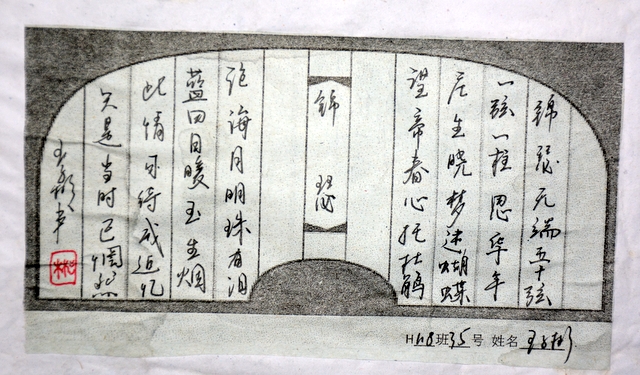 錦瑟无端五十弦
一弦一柱思华年
庄生晓梦迷蝴蝶
望帝春心托杜鹃
錦瑟
沧海月明珠有泪
蓝田日暖玉生烟
此情可待成追忆
只是当时已惘然
王彬书
彬
H118班35号 姓名 王彬